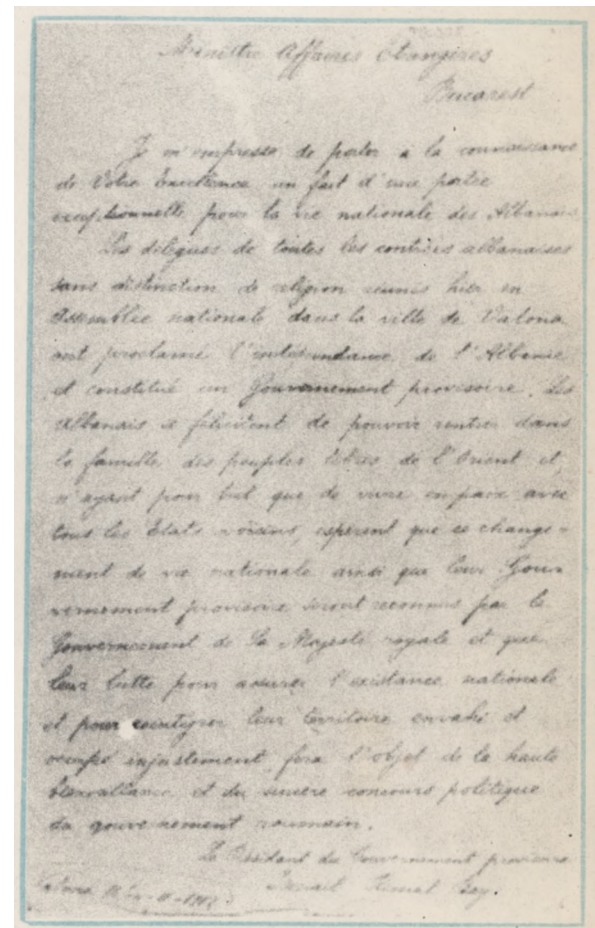 Ministre Affaires Etrangères
Bucarest
Je m'empresse de porter à la connaissance
de Votre Excellence un fait d'une portée
exceptionnelle pour la vie nationale des Albanais
Les délégués de toutes les contrées albanaises
sans distinction de religion réunis hier en
Assemblée nationale dans la ville de Valona
ont proclamé l'indépendance de l'Albanie
et constitué un Gouvernement provisoire. Les
Albanais se félicitent de pouvoir rentrer dans
la famille des peuples libres de l'Orient et,
n'ayant pour but que de vivre en paix avec
tous les Etats voisins, espèrent que ce change-
ment de vie nationale ainsi que leur Gou-
vernement provisoire seront reconnus par le
Gouvernement de Sa Majesté royale et que
leur lutte pour assurer l'existance nationale
et pour leur territoire envahi et
occupé injustement, fera l'objet de la haute
bienveillance et du sincère concours politique
du gouvernement roumain.
Le Président du Gouvernement provisoire
Ismail Kemal Bey.